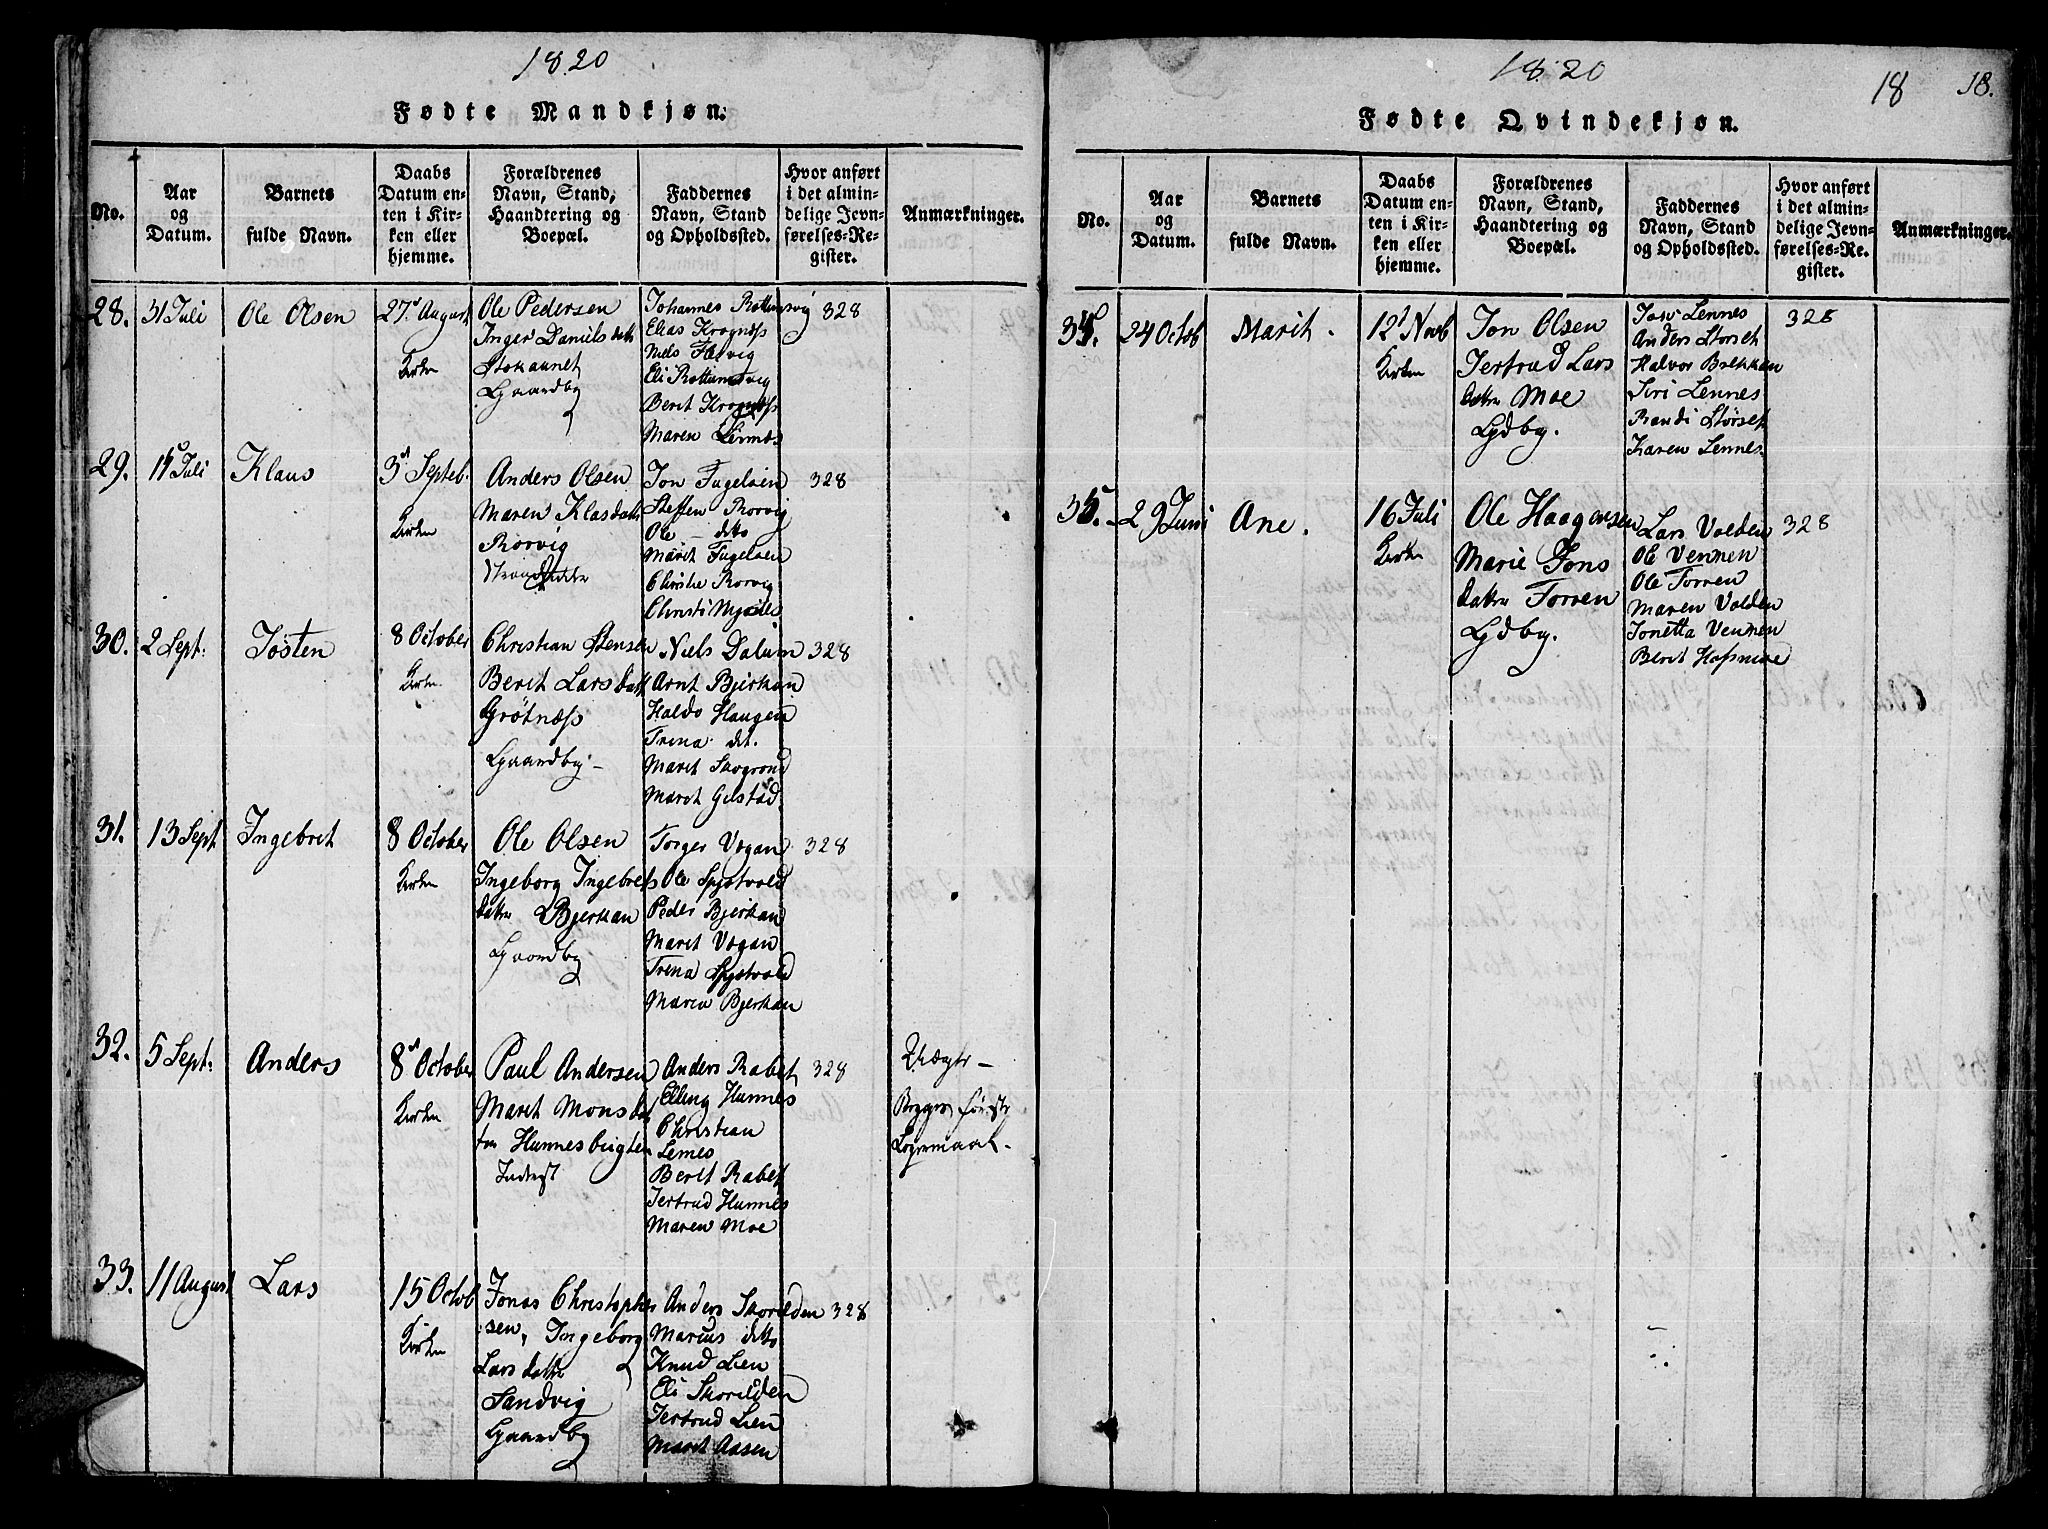 1820
Fødte Mandkjøn.
No.
Aar
og
Datum.
Barnets
fulde Navn.
Daabs
Datum en-
ten i Kir-
ken eller
hjemme.
Forældrenes
Navn, Stand,
Haandtering og
Boepæl.
Faddernes
Navn, Stand
og Opholdssted.
Hvor anført
i det almin-
delige Jevn-
førelses-Re-
gister.
Anmærkninger.
28.
31 Juli
Ole Olsen
27. August
Kirken
Ole Pedersen
Inger Daniels datt
Gaardby
Johannes Rottemsvig
Elias Krognæss
Niels Flesvig
Eli Rottemsvig
Berit Krognæss
Maren
328
29.
Juli
Klaus
3 Septeb.
Kirken
Anders Olsen
Maren Klasdatt
Rorvig
Jon Fugelsien
Steffen Rorvig
Ole - detto
Marit Fugelsien
Christie Rorvig
Christi
328
30.
2 Sept:
Josten
8 October
Kirken
Christian Stensen
Berit Larsdatt
Grötnæss
Gaardby -
Niels Dalum
Arnt Bjerkan
Haldo Haugen
Trena det.
Marit
Marit Gilstad
328
31.
13 Sept
Ingebret
8 October
Kirken
Ole Olsen
Ingeborg Ingebrets
datter Bjerkan
Gaardby
Torger Vogan
Ole Spjotvold
Peder Bjerkan
Marit Vogan
Trena Spjotvold
Maren Bjerkan
328
32.
5 Sept:
Anders
8 October
Kirken
Paul Andersen
Marit Monsda
ter
Inderst
Anders Rabet
Elling Hunnes
Christian
Lennes
Berit Rabet
Jertrud Hunnes
Maren Moe
328
Uægte -
Begges første
Legermaal.
33.
11 August
Lars
15 Octob
Kirken
Jonas Christopher
sen, Ingeborg
Lars datter
Sandvig
Gaardby
Anders Skorilden
Marcus detto
Knud Lien
Eli Skorilden
Jertrud Lien
Marit Aasen
328
1820
18
18.
Fødte Qvindekjøn.
No.
Aar
og
Datum.
Barnets
fulde Navn.
Daabs
Datum en-
ten i Kir-
ken eller
hjemme.
Forældrenes
Navn, Stand,
Haandtering og
Boepæl.
Faddernes
Navn, Stand
og Opholdssted.
Hvor anført
i det almin-
delige Jevn-
førelses-Re-
gister.
Anmærkninger.
34.
24 Octob
Marit.
12 Novb
Kirken
Jon Olsen
Jertrud Lars
datter Moe
Gdby.
Lennes
Anders Storset
Halvor Brekkan
Siri Lennes
Randi Störset
Karen Lennes
328
35.
29 Juni
Ane.
16 Juli
Kirken
Ole Haagensen
Marie Jons
datter Torren
Gdby.
Lars Volden
Ole Vennen
Ole Torren
Maren Volden
Jonetta Vennen
Berit Hofsmoe
328